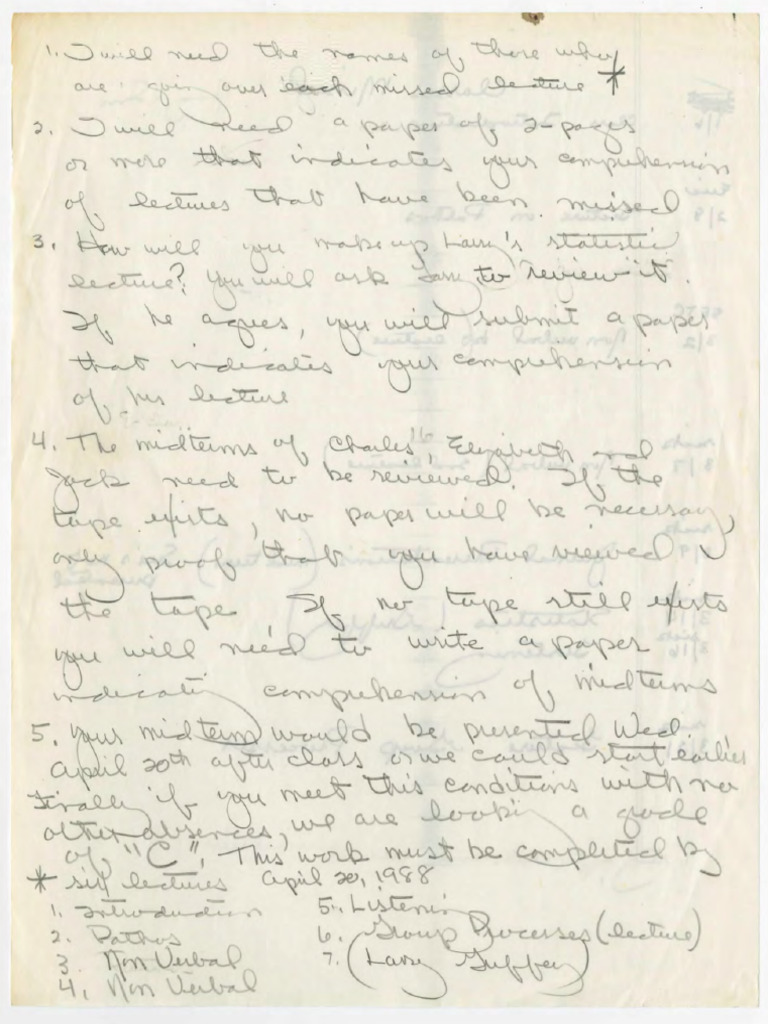 1. I will need the names of those who
are going over each missed lecture *
2. I will need a paper of 2-pages
or more that indicates your comprehension
of lectures that have been missed
3. How will you makeup Larry's statistic
lecture? You will ask Larry to "review it".
If he agrees, you will submit a paper
that indicates your comprehension
of his lecture
4. The midterms of Charles, Elizabeth and
Jack need to be reviewed. If the
tape exists, no paper will be necessary,
only proof that you have viewed
the tape If no tape still exists
you will need to write a paper
indicating comprehension of midterms
5. Your midterm would be presented Wed.
April 20th after class or we could start earlier
Finally if you meet this conditions with no
other absences, we are looking a grade
of "C". This work must be completed by
April 20, 1988
* six lectures
1. Introduction
2. Pathos
3. Non Verbal
4. Non Verbal
5. Listening
6. Group Processes (lecture)
7. (Larry Guffey)